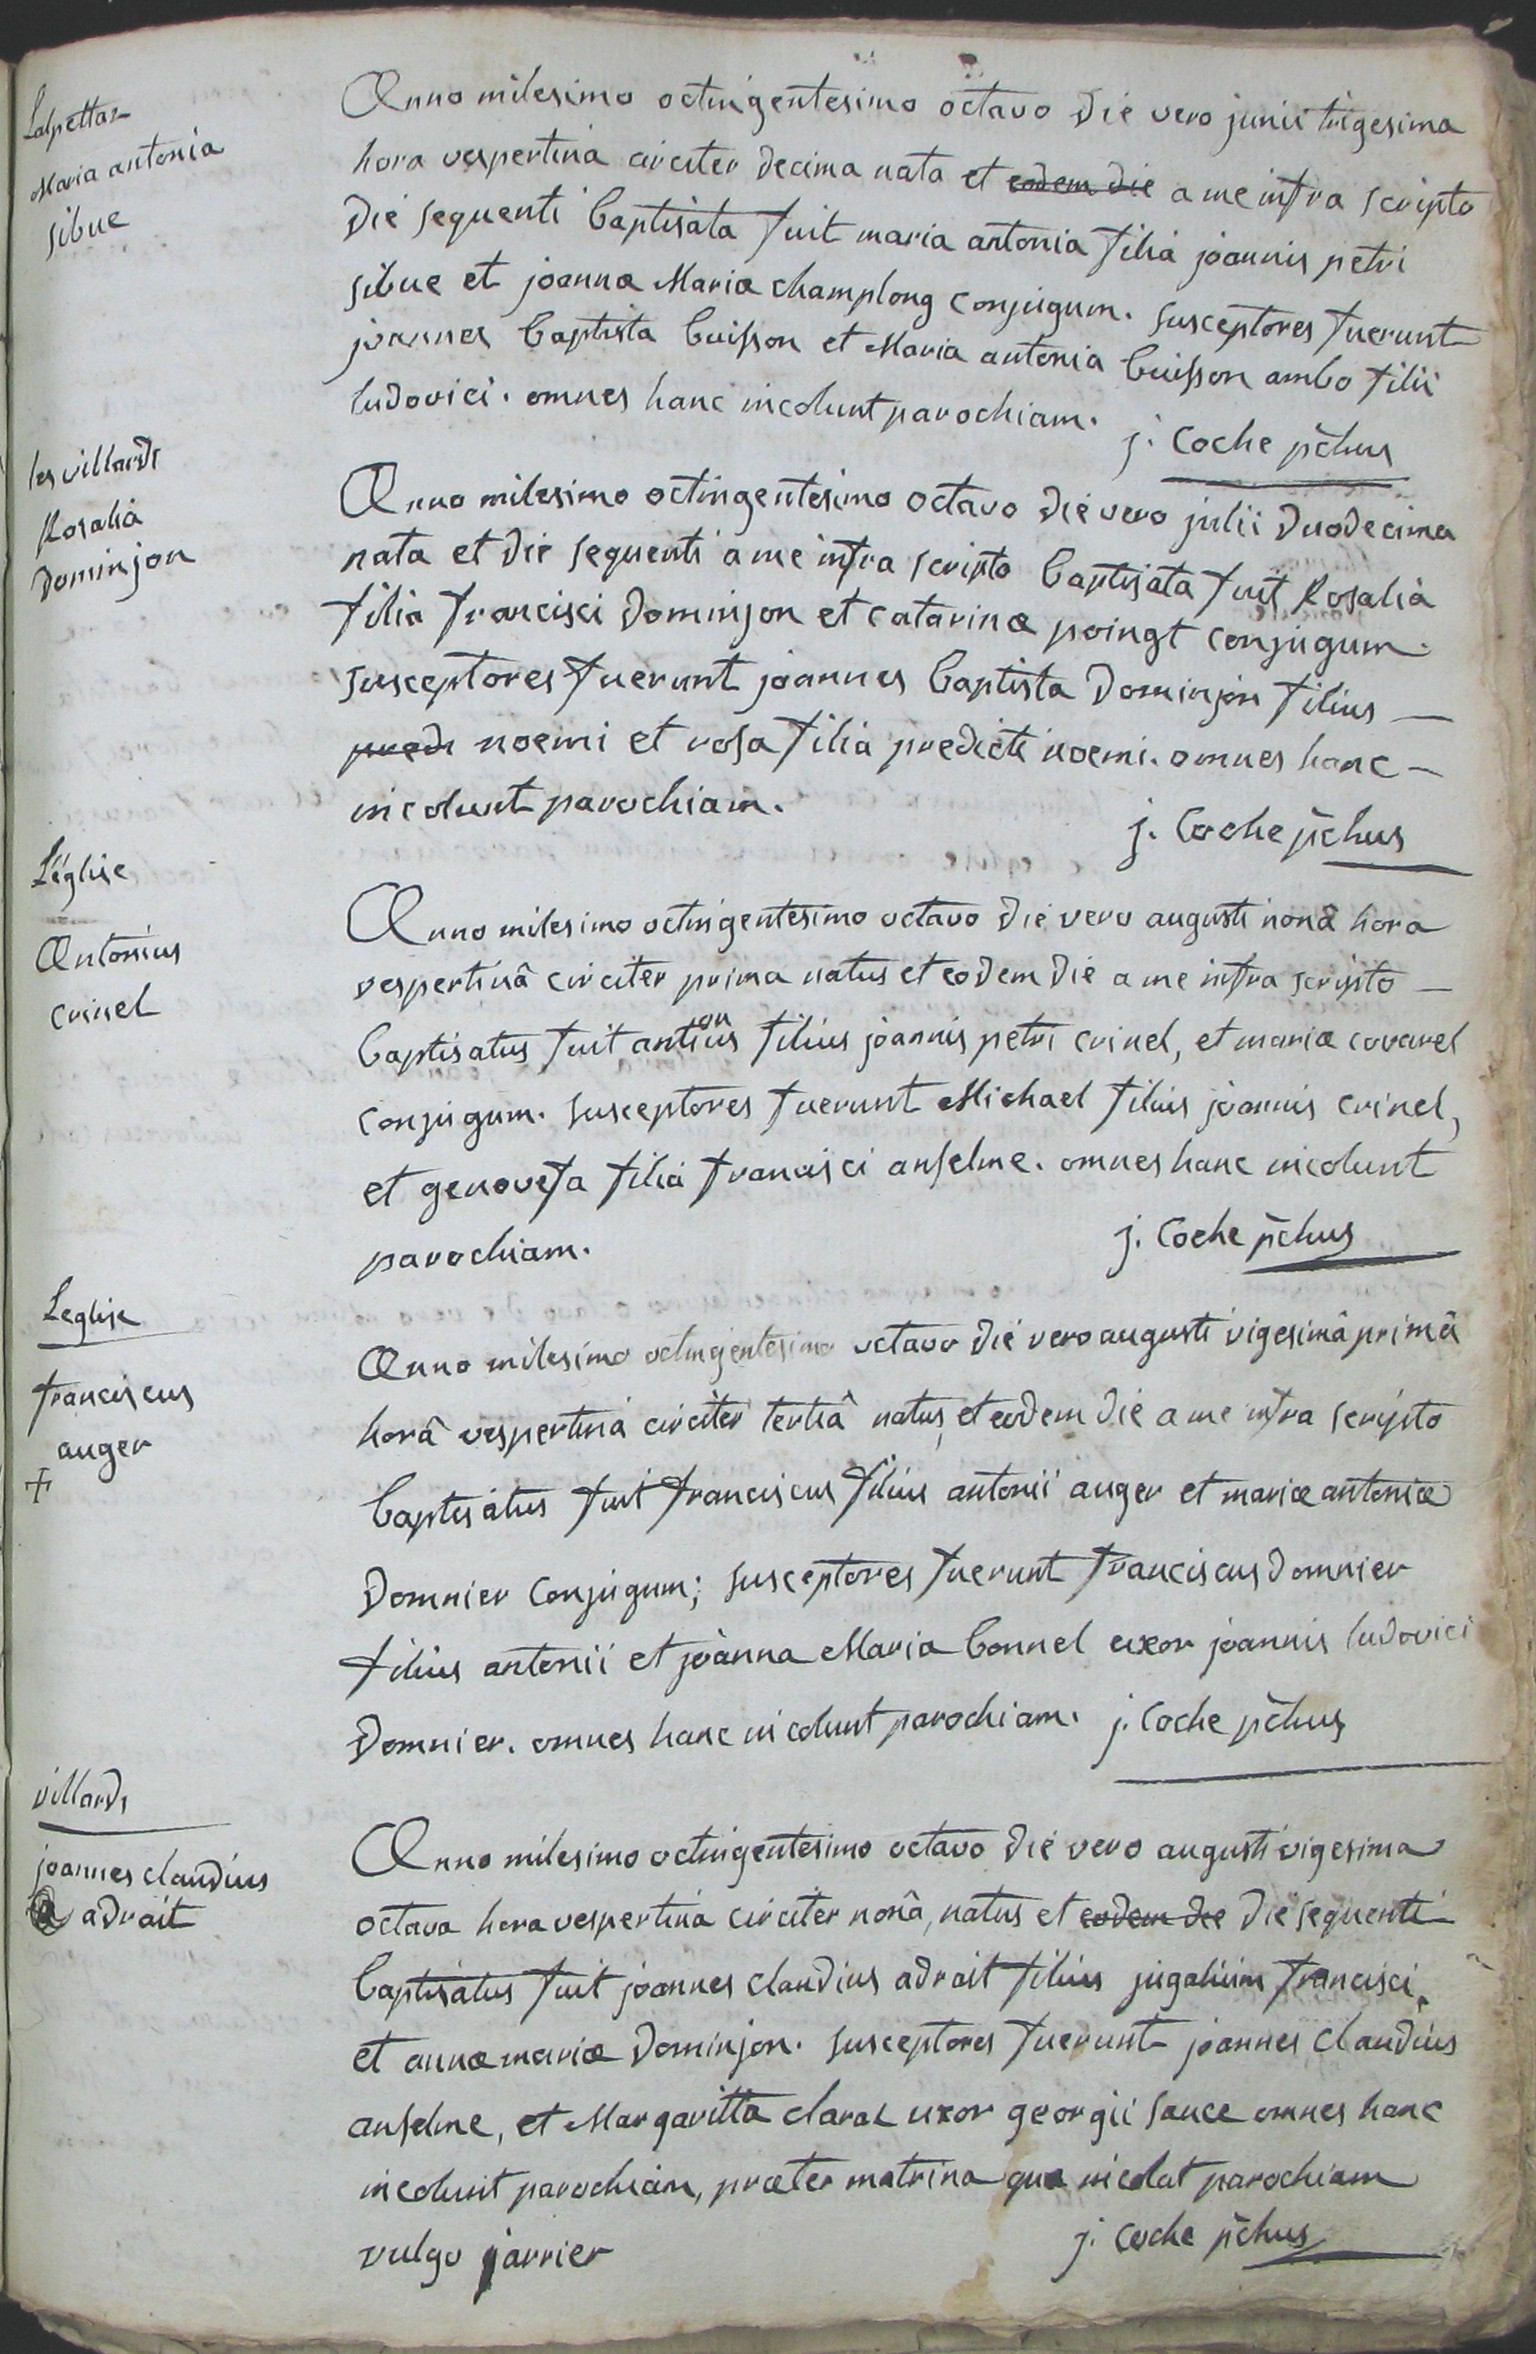 Lalpettaz
Maria antonia
sibue
Anno milesimo octingentesimo octavo die vero junii trigesima
hora vespertina circiter decima nata et eodem die a me infra scripto
die sequenti baptisata fuit maria antonia filia joannis petri
sibue et joannæ Mariæ champlong conjugum. susceptores fuerunt
joannes baptista buisson et Maria antonia buisson ambo filii
ludovici. omnes hanc incolunt parochiam.
j. Coche pchus
les villards
Rosalia
Dominjon
Anno milesimo octingentesimo octavo die vero julii duodecima
nata et die sequenti a me infra scripto baptisata fuit Rosalia
filia francisci Dominjon et catarinæ poingt conjugum.
susceptores fuerunt joannes baptista Dominjon filius
predi noemi et rosa filia predicti noemi. omnes hanc
incolunt parochiam.
j. Coche pchus
L'église
Antonius
crinel
Anno milesimo octingentesimo octavo die vero augusti nonâ hora
vespertinâ circiter prima natus et eodem die a me infra scripto
baptisatus fuit antonius filius joannis petri crinel, et mariæ covarel
conjugum. susceptores fuerunt Michael filius joannis crinel,
et genovefa filia francisci anselme. omnes hanc incolunt
parochiam.
j. Coche pchus
Leglise
franciscus
auger
+
Anno milesimo octingentesimo octavo die vero augusti vigesimâ primâ
horâ vespertina circiter tertiâ natus, et eodem die a me infra scripto
baptisatus fuit franciscus filius antonii auger et mariæ antoniæ
Domnier conjugum; susceptores fuerunt franciscus domnier
filius antonii et joanna Maria bonnel uxor joannis ludovici
Domnier. omnes hanc incolunt parochiam. j. Coche pchus
villards
joannes claudius
adrait
Anno milesimo octingentesimo octavo die vero augusti vigesima
octava hora vespertina circiter nonâ, natus et eodem die die sequenti
baptisatus fuit joannes claudius adrait filius jugalium francisci,
et annæ mariæ Dominjon. susceptores fuerunt joannes claudius
anselme, et Margaritta claraz uxor georgii sauce omnes hanc
incolunt parochiam, præter matrina quæ incolat parochiam
vulgo jarrier
j. Coche pchus